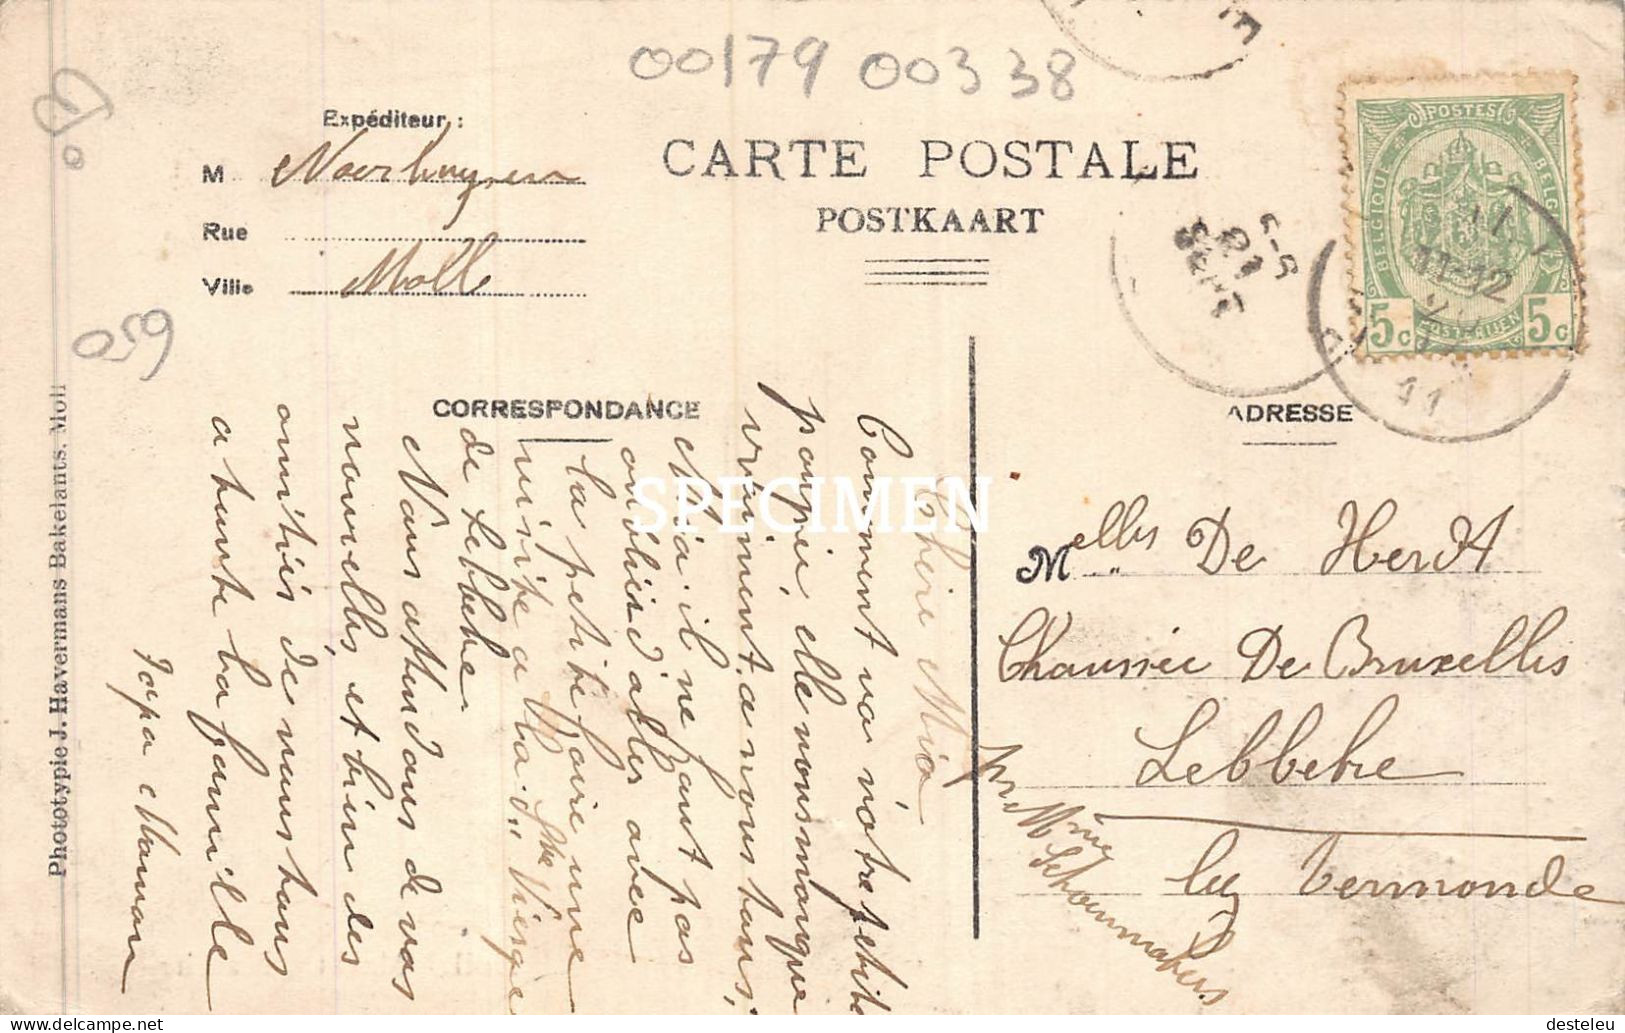 00179 00338
059
Expéditeur :
M Noorhuysen
Rue
Ville Molle
CARTE POSTALE
POSTKAART
POSTES
BELGIQUE
BELGIË
POSTERIJEN
5c 5c
11-12
11
SEPT
CORRESPONDANCE
ADRESSE
Chère Mia
Comment va vôtre petite
poupée, elle nous manque
vraiment à nous tous,
N'a-il ne faut pas
oublier d'aller avec
la petite faire une
visite a Ste Vierge
de Lebbeke.
Nous attendons de vos
nouvelles et bien des
amitiés de nous tous
a toute la famille
Papa Maman
Melles De Herdt
Chaussée De Bruxelles
Lebbeke
lez Termonde
pr Mme
Schoenmakers
Phototypie J. Havermans Bakelants. Moll
SPECIMEN
desteleu